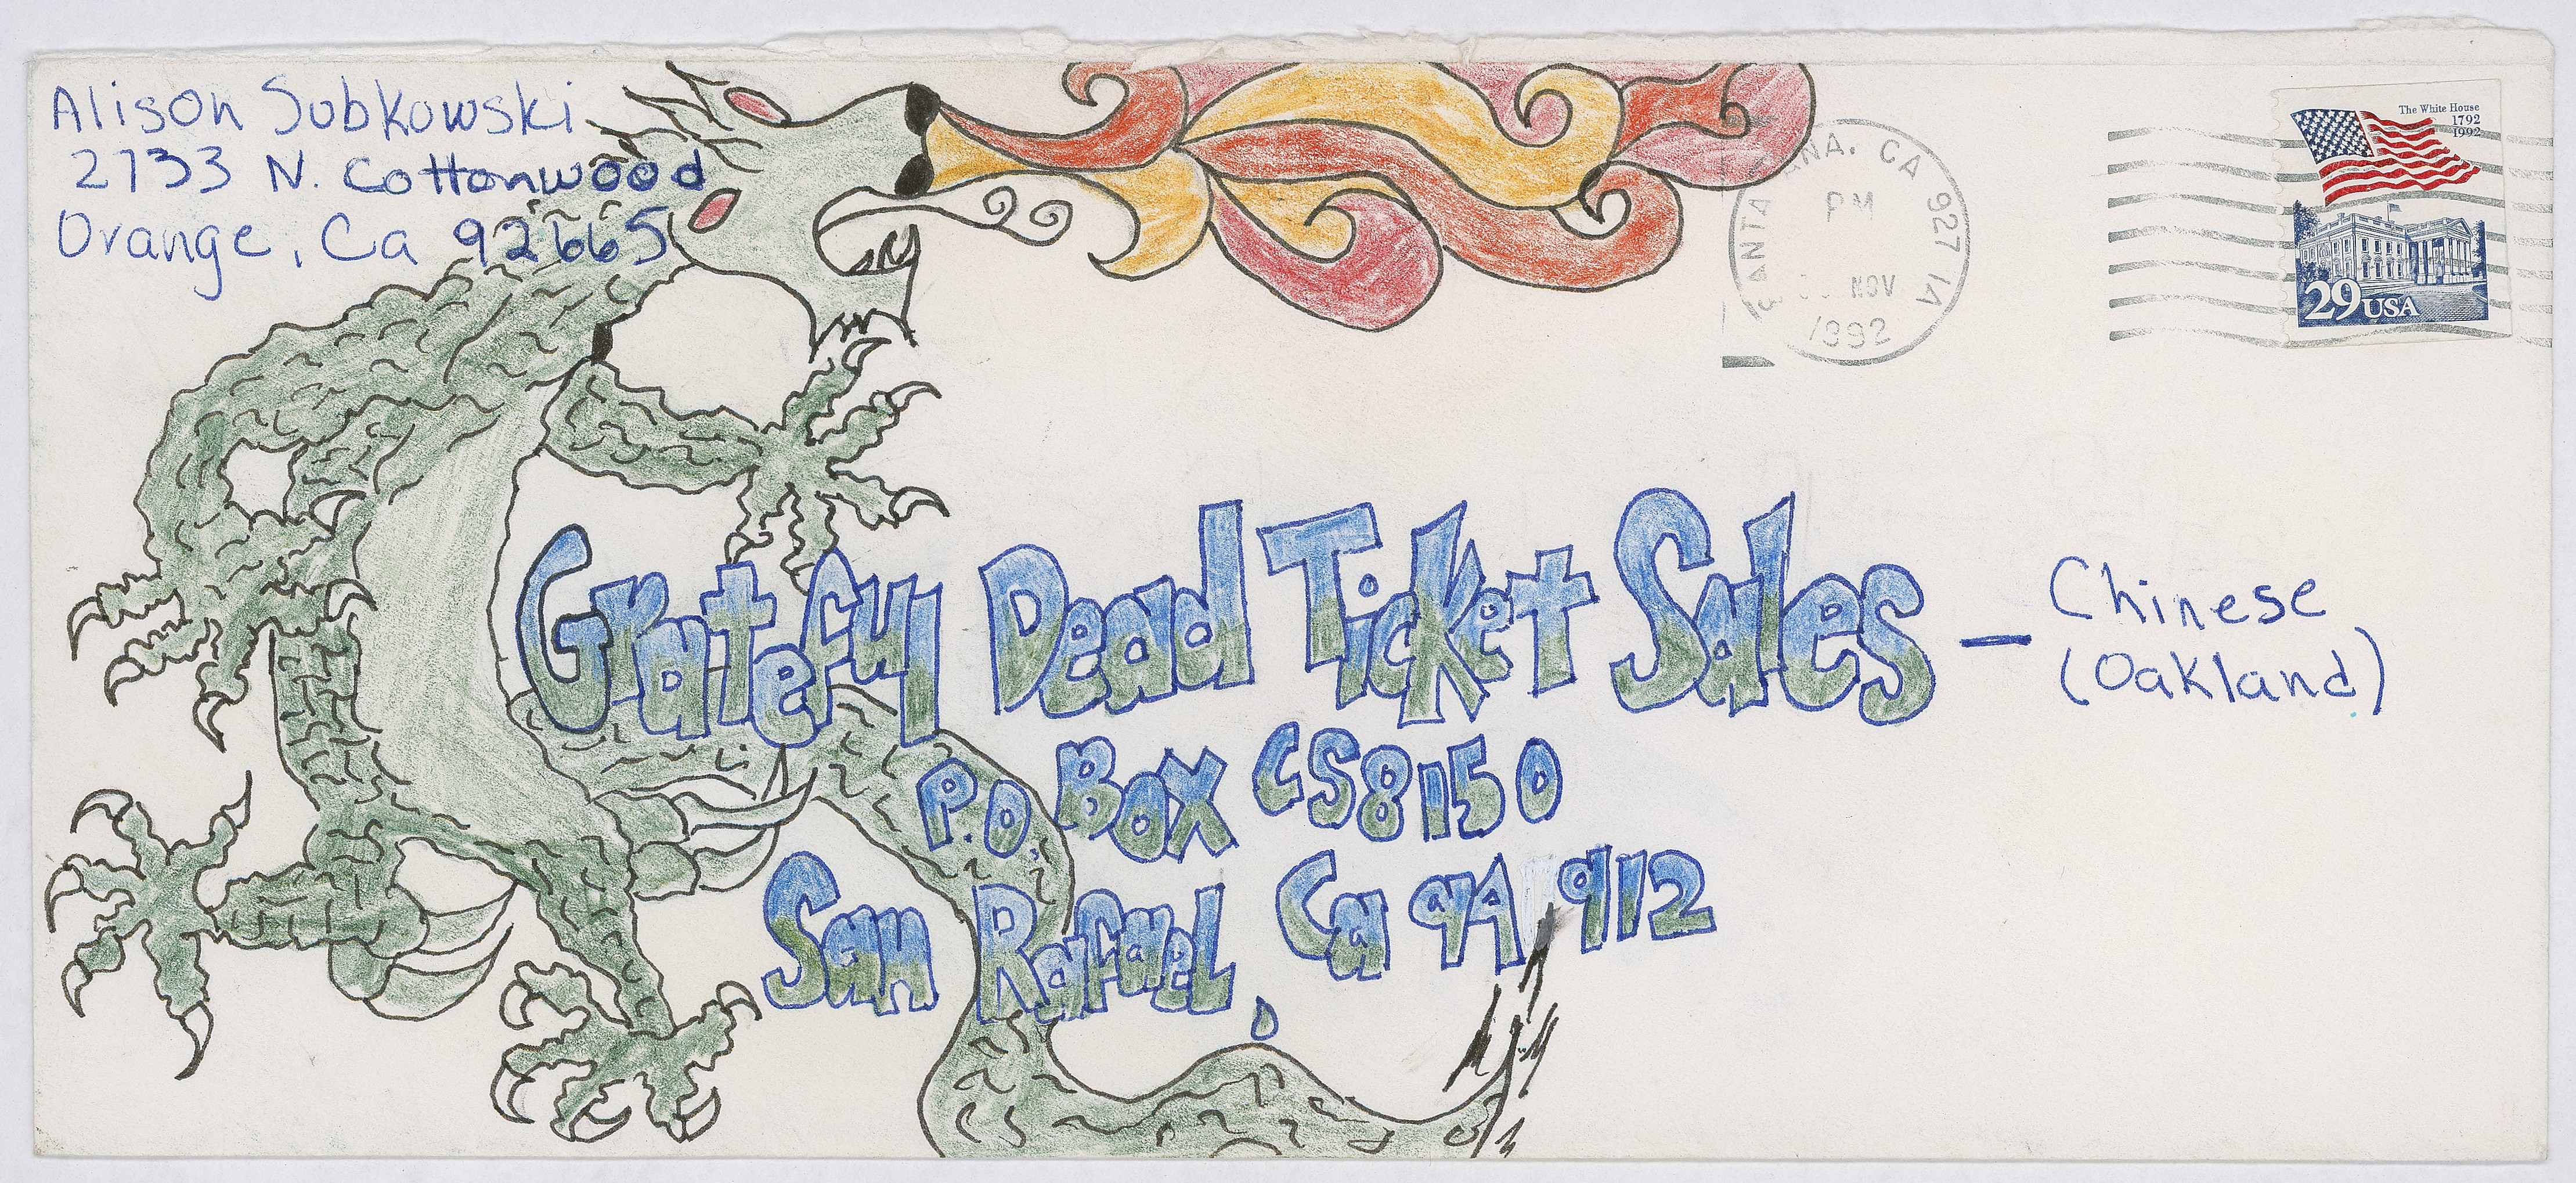 Alison Sobkowski
2733 N. Cottonwood
Orange, Ca 92665
ANTA NA. CA 927
PM
NOV
1992
The White House
1792
1992
29 USA
Grateful Dead Ticket Sales — Chinese
(Oakland)
P.O. Box CS8150
San Rafael, Ca 94912